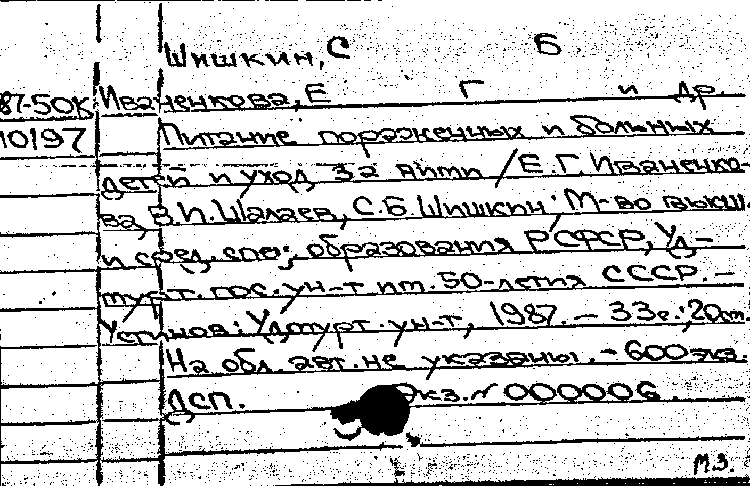 Шишкин, С Б
87-50К Иваненкова, Е Г и др.
10197 Питание пораженных и больных
детей и уход за ними / Е.Г. Иваненко-
ва, В.И. Шалаев, С.Б. Шишкин; М-во высш.
и сред. спец. образования РСФСР, Уд-
турт. гос. ун-т им. 50-летия СССР. -
Устинов: Удмурт. ун-т, 1987. - 33с.; 20см.
На обл. авт. не указаны. - 600экз.
ДСП. Экз. N 000006.
М.З.